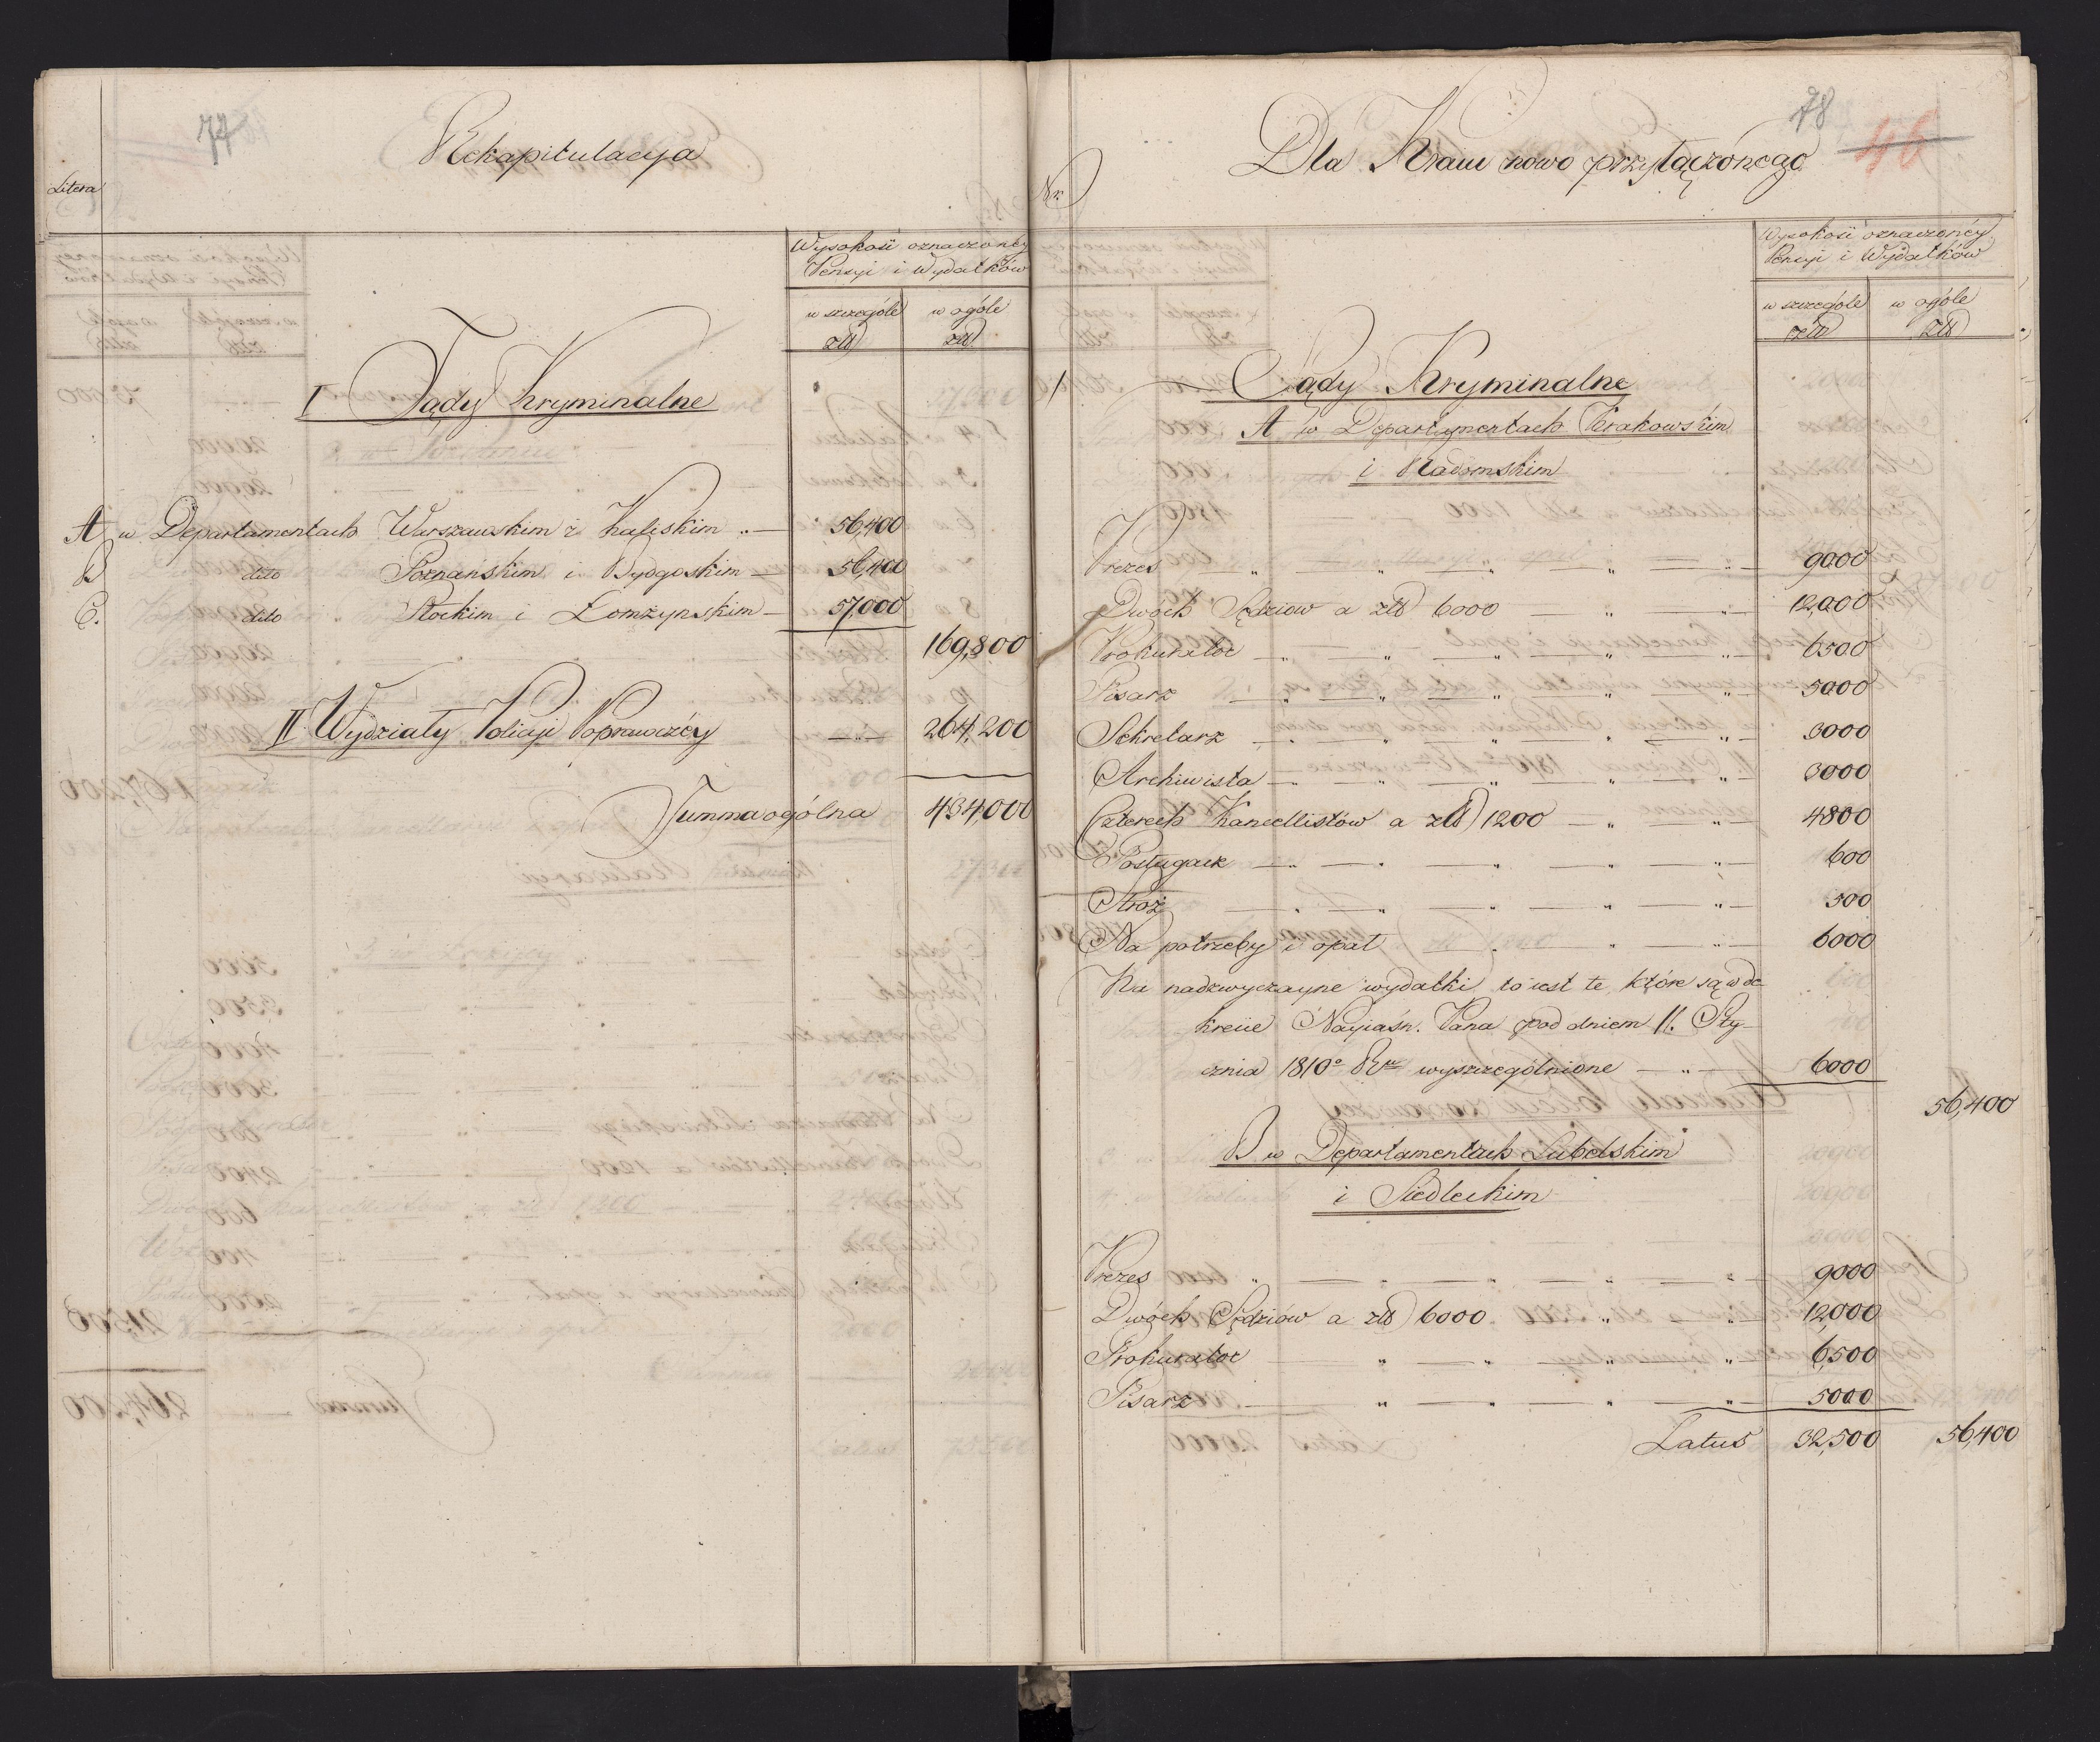 77
Rekapitulacya
Litera
Wysokość oznaczoney
Pensyi i Wydatków
w szczególe w ogóle
złł złł
I Sądy Kryminalne
A w Departamentach Warszawskim i Kaliskim 56,400
B dito Poznańskim i Bydgoskim 56,400
C. dito Płockim i Łomżynskim 57,000
169,800
II Wydziały Policyi Poprawczéy 264,200
Summa ogólna 434,000
78
46
Dla Kraiu nowo przyłączonego
Nr.
Wysokość oznaczonéy
Pensyi i Wydatków
w szczególe w ogóle
złł złł
1 Sądy Kryminalne
A w Departamentach Krakowskim
i Radomskim
Prezes 9000
Dwóch Sędziow a złł 6000 12,000
Prokurator 6500
Pisarz 5000
Sekretarz 3000
Archiwista 3000
Czterech Kancellistów a złł 1200 4800
Posługacz 600
Stróż 500
Na potrzeby i opał 6000
Na nadzwyczayne wydatki to iest te które są w de-
krecie Nayiaśn. Pana pod dniem 11. Sty-
cznia 1810º Rku wyszczególnione 6000
56,400
B w Departamentach Lubelskim
i Siedleckim
Prezes 9000
Dwóch Sędziów a złł 6000 12,000
Prokurator 6,500
Pisarz 5000
Latus 32,500 56,400